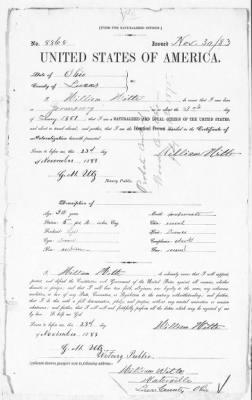 [FORM FOR NATURALIZED CITIZEN.]
No. 8868 Issued Nov 30/83
UNITED STATES OF AMERICA.
State of Ohio
County of Lucas
I, William Witte do swear that I was born
in Germany on or about the 3rd day
of 1851 that I am a NATURALIZED AND LOYAL CITIZEN OF THE UNITED STATES,
and about to travel abroad; and further, that I am the Identical Person described in the Certificate
of Naturalization herewith presented.
Sworn to before me this 23d day
of November 1883
William Witte
G. M. Utz
Notary Public.
Description of
Age: 32 years
Mouth:
Stature: 5 feet inches, Eng.
Chin: round
Forehead: high
Hair: brown
Eyes:
Complexion:
Nose: medium
Face: round
I, William Witte do solemnly swear that I will support,
protect, and defend the Constitution and Government of the United States against all enemies, whether
domestic or foreign; and that I will bear true faith, allegiance, and loyalty to the same, any ordinance,
resolution, or law of any State, Convention, or Legislature to the contrary notwithstanding; and further,
that I do this with a full determination, pledge, and purpose, without any mental reservation or evasion
whatsoever; and further, that I will well and faithfully perform all the duties which may be required of me
by law. So help me God.
Sworn to before me this 23d
day of November 1883
William Witte
G. M. Utz
Notary Public.
Applicant desires passport sent to following address:
William Witte
Waterville
Lucas County Ohio